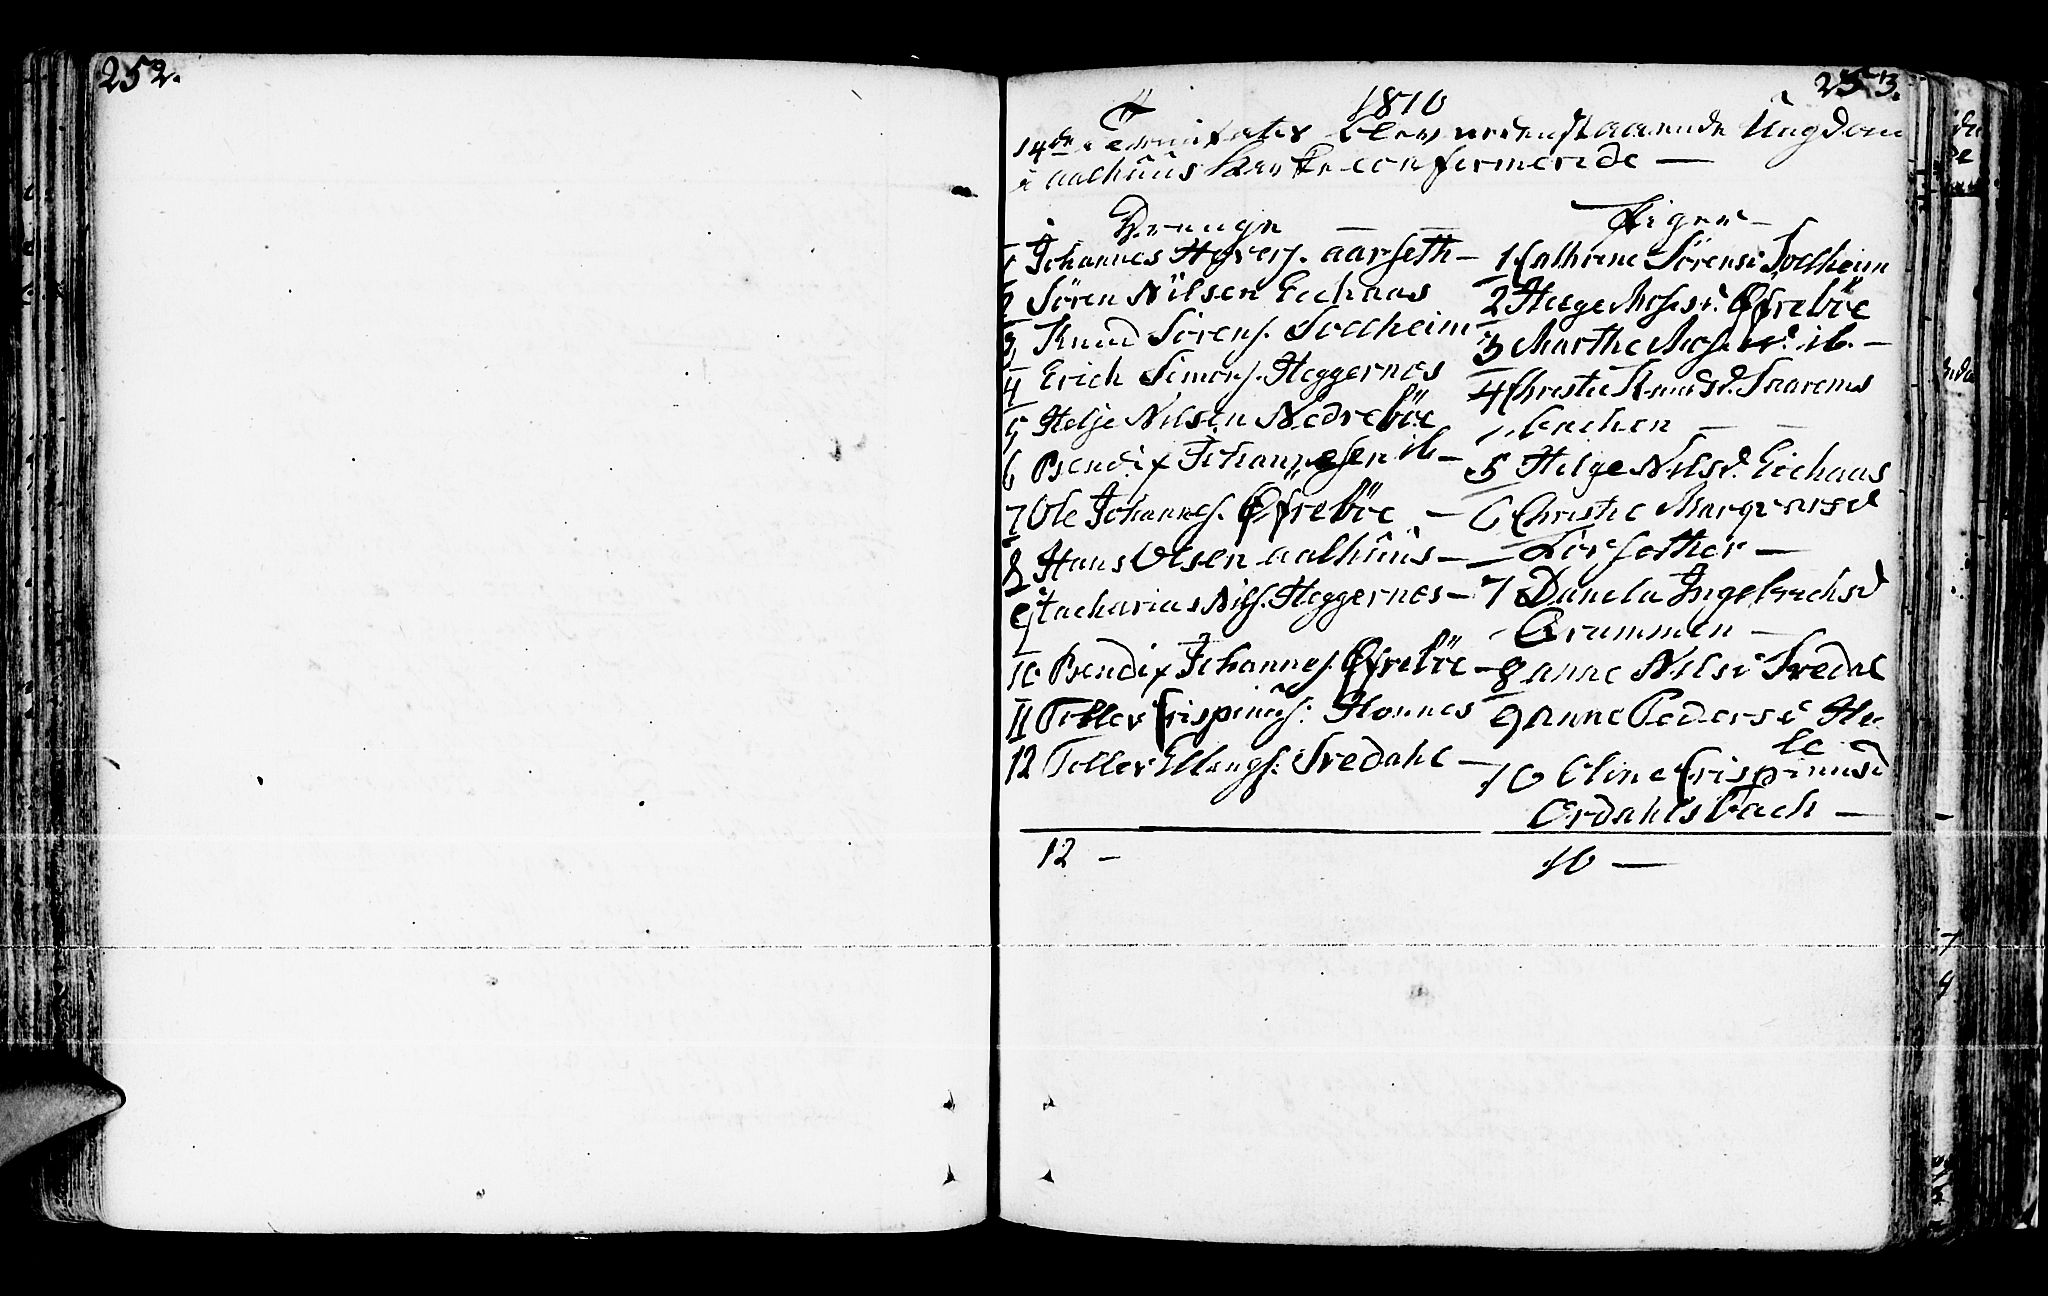 252.
253.
1810
14de Trinitatis blev nedenstaaende Ungdom
i aalhûûs Kirke confirmerede —
Drenge — — Piger —
1 Johannes Hofers. aarseth —
2 Sören Nilsen Eichaas
3 Knud Sörens. Solheim
4 Erich Simons. Heggernes
5 Helje Nilsen Nedreböe
6 Bendix Johannesen ib —
7 Ole Johannes. Öfreböe —
8 Hans Olsen aalhûûs —
9 Zacharias Nils. Heggernes —
10 Bendix Johannes. Öfreböe —
11 Toller Crispinûs: Honnes
12 Toller Ellings: Sredahl —
12 —
1 Cathrine Sörensd Solheim
2 Helge Mosesd. Öfreböe
3 Marthe Mosesd. ib. —
4 Christie Knudsd.
bachen — —
5 Helge Nilsd. Eichaas
6 Christie Marqvarsd
Försether —
7 Danela Ingebrechsd
Grimmen —
8 anne Nilsd Sredal
9 Anne Pedersd He-
le
10 Oline Crispinusd
Ordahlsbach —
10 —